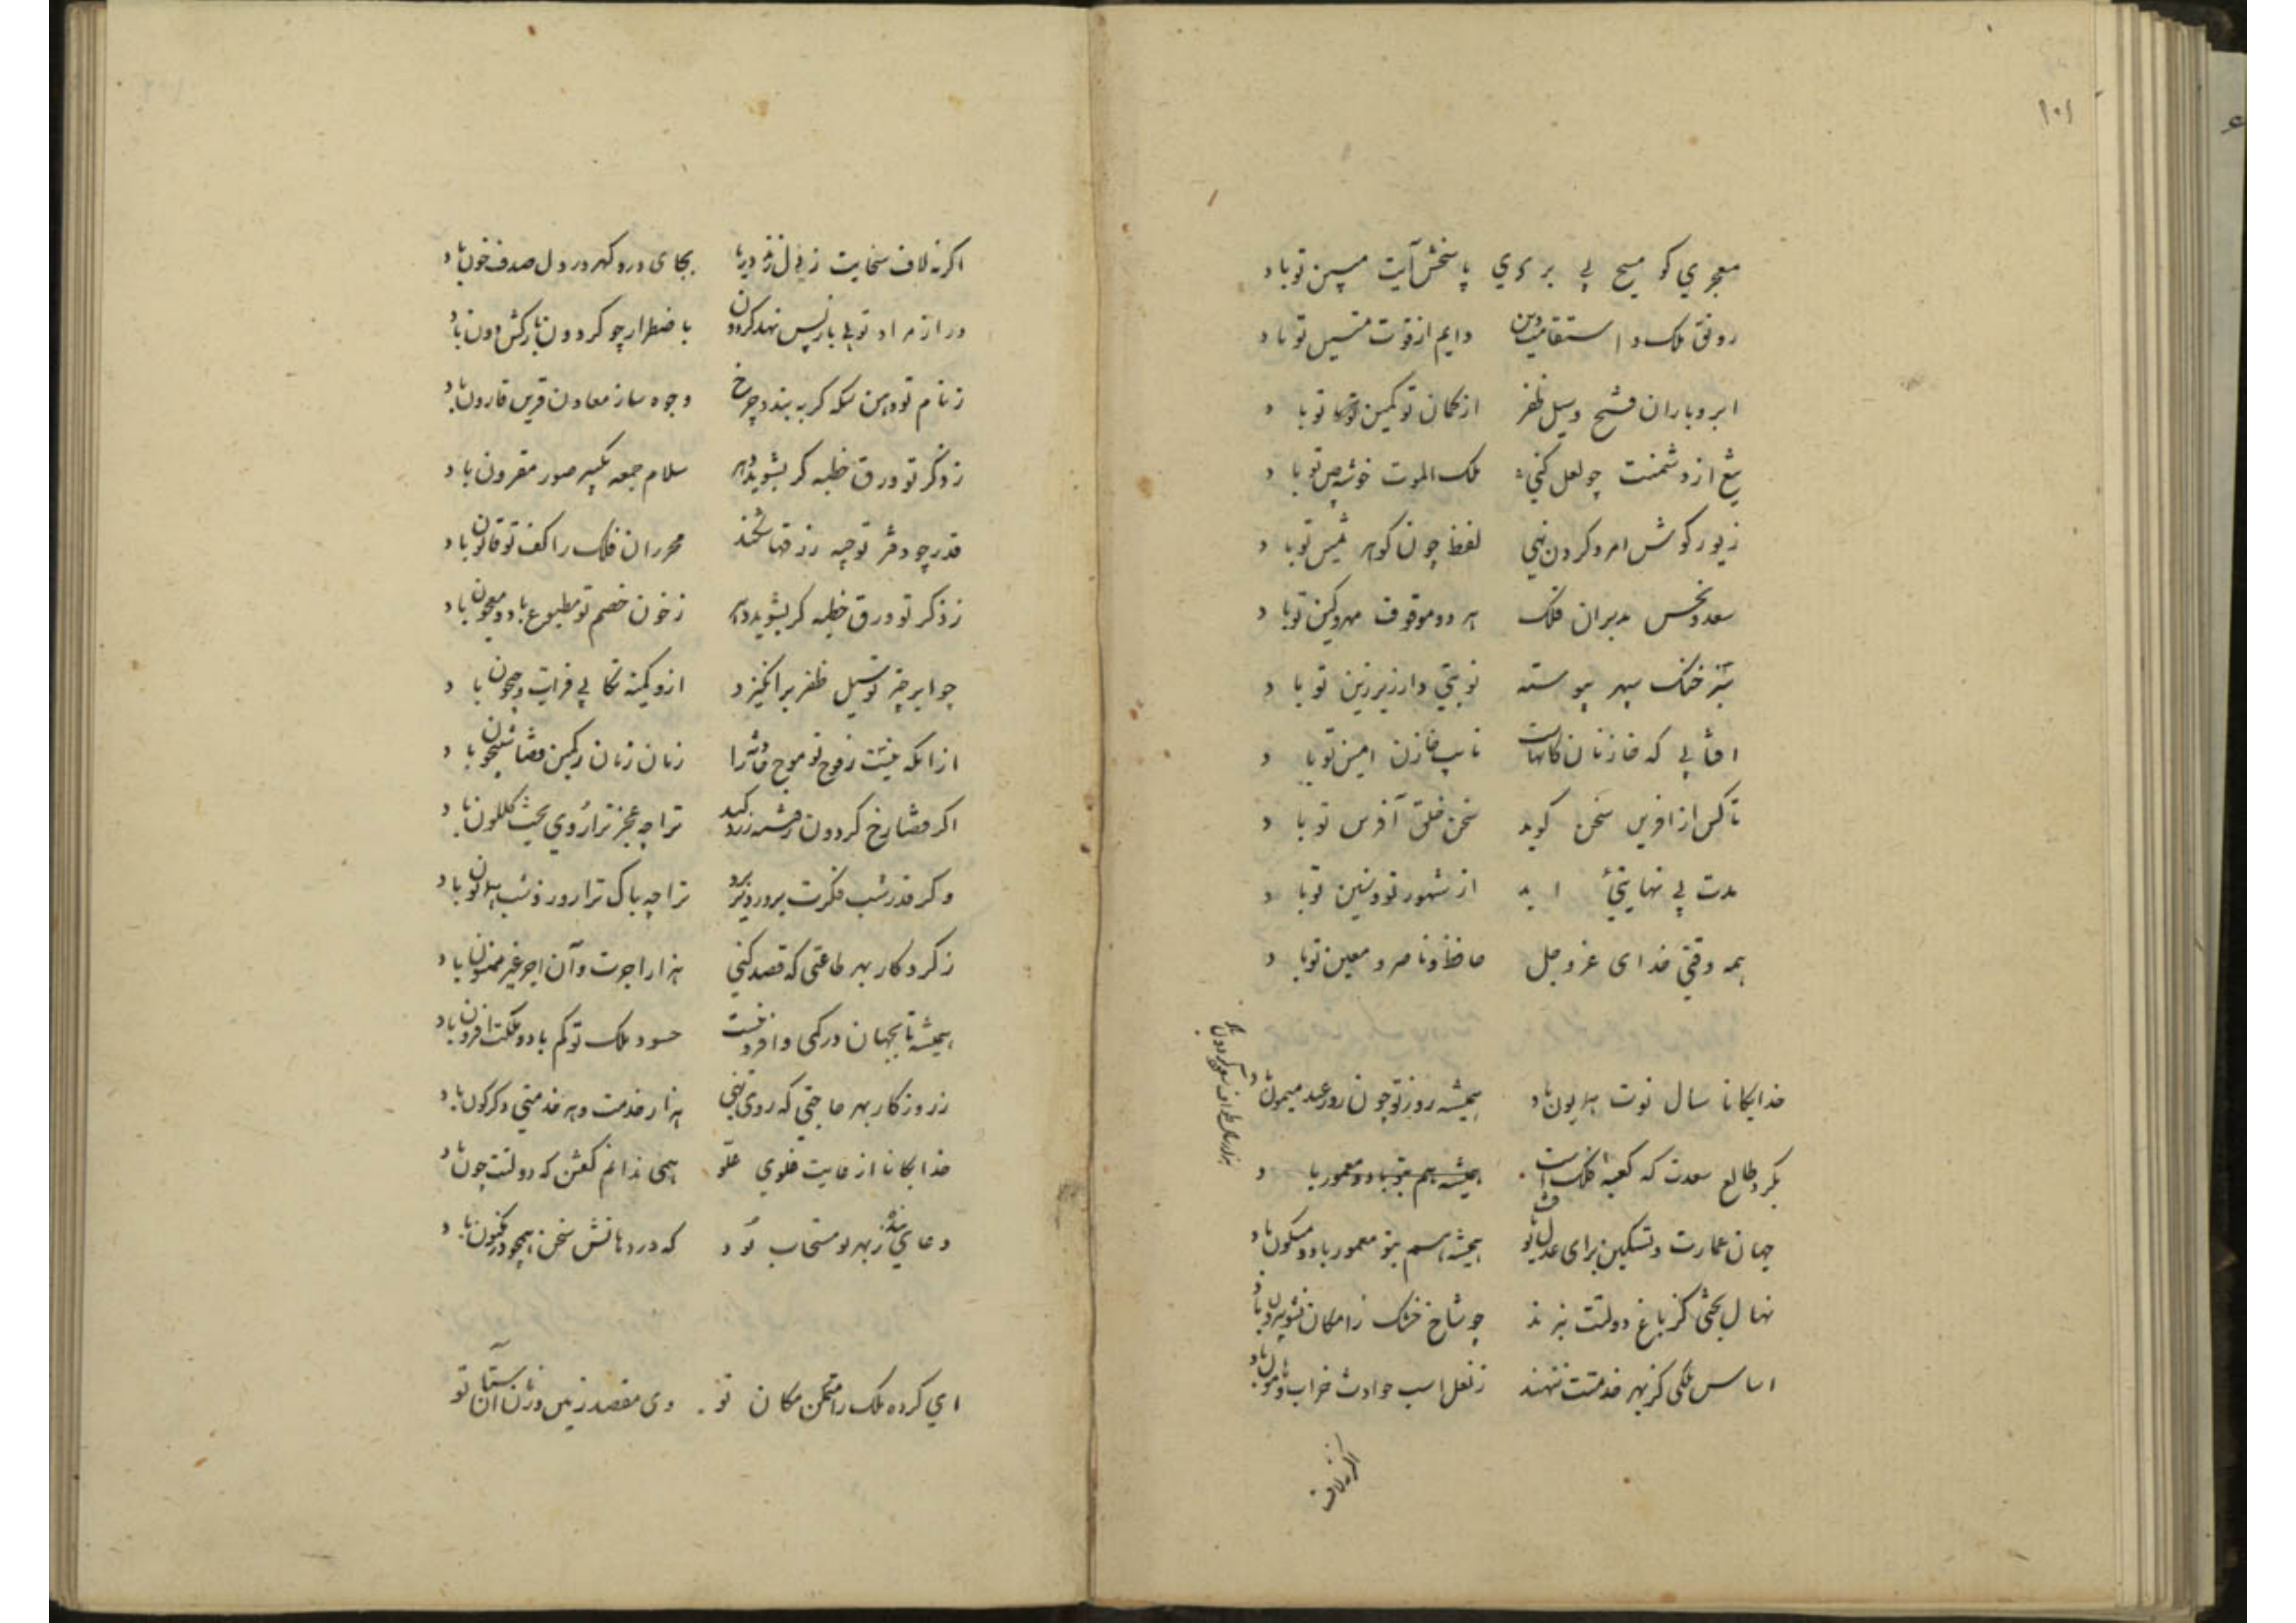 ۱۰۱
معجزی کو مسیح پی بر پی پاسخش آیت مبین تو باد
رونق ملک و استقامت دین دایم از قوت متین تو باد
ابر و باران فتح و سیل ظفر از کمان تو کمین تو باد
تیغ از دشمنت چو لعل کنی ملک الموت خوشه چین تو باد
زیور گوش امر و گردن نهی لفظ چون گوهر ثمین تو باد
سعد و نحس مدبران فلک هر دو موقوف مهر و کین تو باد
تیز خنگ سپهر پیوسته نوبتی وار زیر زین تو باد
آفتابی که خازن کانهاست نایب خازن امین تو باد
تا کس از آفرین سخن گوید سخن خلق آفرین تو باد
مدت بی نهایتی ابد از شهور تو و سنین تو باد
همه وقتی خدای عز و جل حافظ و ناصر و معین تو باد
خدایگانا سال نوت همایون باد همیشه روز تو چون روز عید میمون باد
بگرد طالع سعدت که کعبه فلک است همیشه هم بتو باد و معمور باد
جهان عمارت و تسکین برای عدل تو یافت همیشه هم بتو معمور باد و مسکون باد
نهال بختی کز باغ دولتت نبرند چو شاخ خشک ز امکان نشو بیرون باد
اساس ملکی کز بهر خدمتت ننهند ز نعل اسب حوادث خراب و هامون باد
اگر نه لاف
اگر نه لاف سخایت زند دل دریا بجای در و گهر در دل صدف خون باد
ور از مراد تو پی باز پس نهد گردون باضطرار چو گردون بارکش دون باد
ز نام تو دهن سکه گر ببندد چرخ وجوه ساز معادن قرین قارون باد
ز ذکر تو ورق خطبه گر بشوید دهر سلام جمعه بتکبیر صور مقرون باد
قدر چو دفتر توجیه رزقها شکند محرران فلک را کف تو قانون باد
ز ذکر تو ورق خطبه گر بشوید دهر ز خون خصم تو مطبوع باد و معجون باد
چو ابر چتر تو سیل ظفر برانگیزد ازو کمینه تکابی فرات و جیحون باد
از آنکه فوج تو موج زمان زمان ز کمین قضا شبیخون باد
اگر قضا رخ گردون زرد کند ترا چه عجز ترا روی بخت گلگون باد
وگر قدر شب فکرت بروز نبرد ترا چه باک ترا روز و شب همایون باد
ز کردگار بهر طاعتی که قصد کنی هزار اجرت و آن اجر غیر ممنون باد
همیشه تا بجهان در کمی و افزونیست حسود ملک تو کم باد و ملکت افزون باد
ز روزگار بهر حاجتی که روی نهی هزار خدمت و هر خدمتی دگرگون باد
خدایگانا از غایت غلو علو همی ندانم گفتن که دولتت چون باد
دعای بنده ز بهر تو مستجاب تو د که در دهانش سخن همچو در مکنون باد
ای کرده ملک را متمکن مکان تو وی مقصد زمین و زمان آستان تو